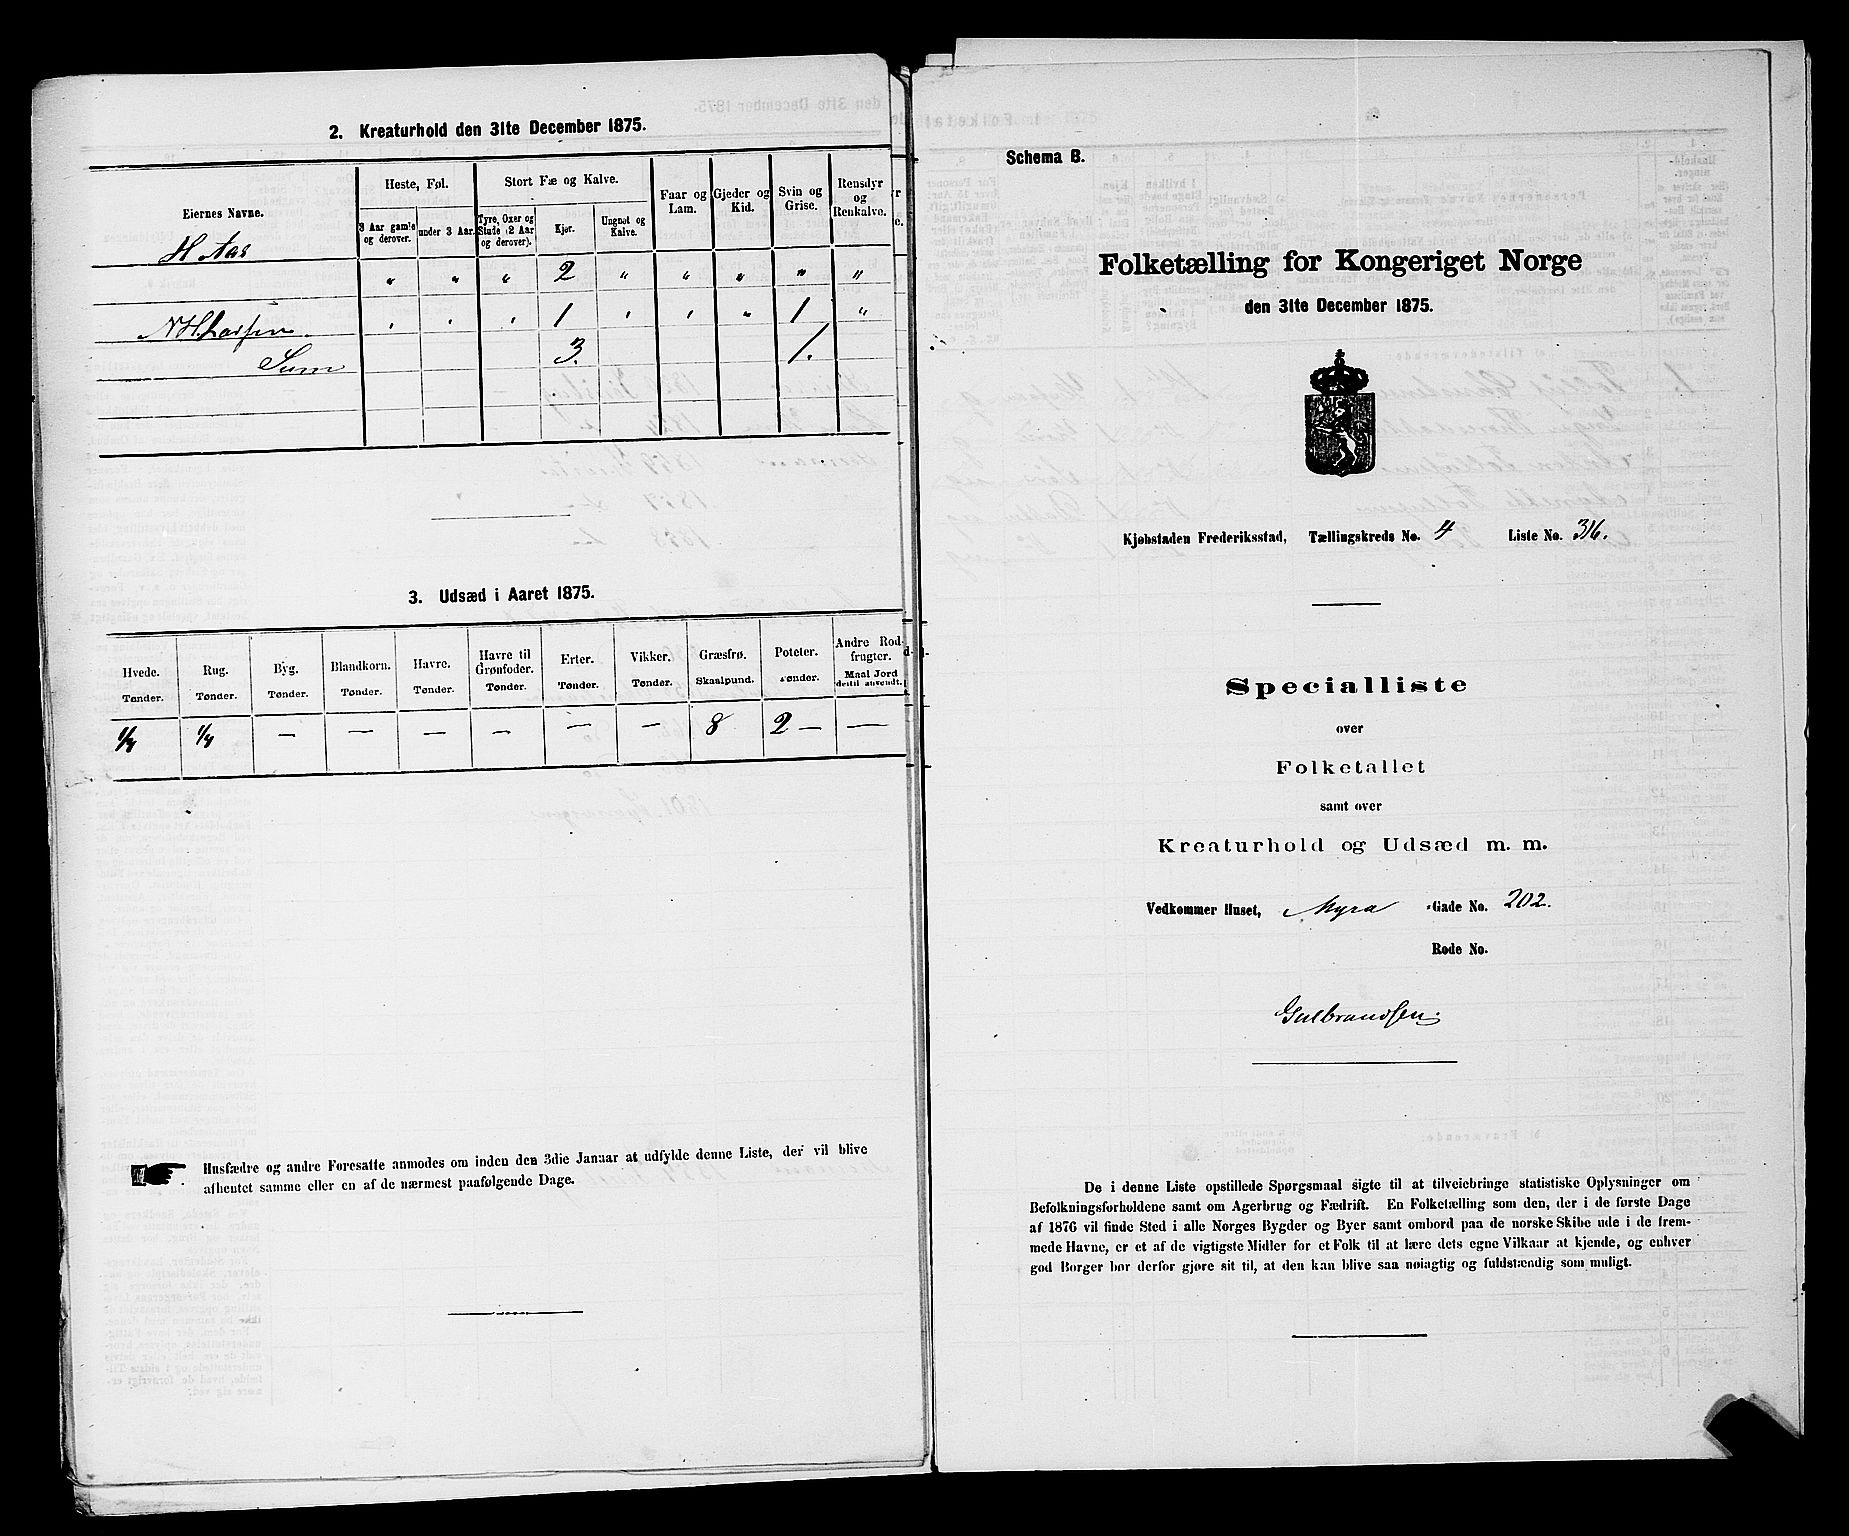 2. Kreaturhold den 31te December 1875.
Eiernes Navne.
Heste, Føl.
Stort Fæ og Kalve.
Faar og Lam.
Gjeder og Kid.
Svin og Grise.
Rensdyr og Renkalve.
3 Aar gamle og derover.
under 3 Aar.
Tyre, Oxer og Stude (2 Aar og derover).
Kjør.
Ungnøt og Kalve.
H. Aas " " " 2 " " " " "
N H Larsen " " " 1 " " " 1 "
Sum 3. 1.
3. Udsæd i Aaret 1875.
Hvede. Rug. Byg. Blandkorn. Havre. Havre til Grønfoder. Erter. Vikker. Græsfrø. Poteter. Andre Rodfrugter.
Tønder. Tønder. Tønder. Tønder. Tønder. Tønder. Tønder. Tønder. Skaalpund. Tønder. Maal Jord dertil anvendt.
— — — — — — 8 2 — —
Husfædre og andre Foresatte anmodes om inden den 3die Januar at udfylde denne Liste, der vil blive
afhentet samme eller en af de nærmest paafølgende Dage.
Schema B.
Folketælling for Kongeriget Norge
den 31te December 1875.
Kjøbstaden Frederiksstad, Tællingskreds No. 4 Liste No. 316.
Specialliste
over
Folketallet
samt over
Kreaturhold og Udsæd m. m.
Vedkommer Huset, Myra -Gade No. 202.
Rode No.
Gulbrandsen.
De i denne Liste opstillede Spørgsmaal sigte til at tilveiebringe statistiske Oplysninger om
Befolkningsforholdene samt om Agerbrug og Fædrift. En Folketælling som den, der i de første Dage
af 1876 vil finde Sted i alle Norges Bygder og Byer samt ombord paa de norske Skibe ude i de frem-
mede Havne, er et af de vigtigste Midler for et Folk til at lære dets egne Vilkaar at kjende, og enhver
god Borger bør derfor gjøre sit til, at den kan blive saa nøiagtig og fuldstændig som muligt.